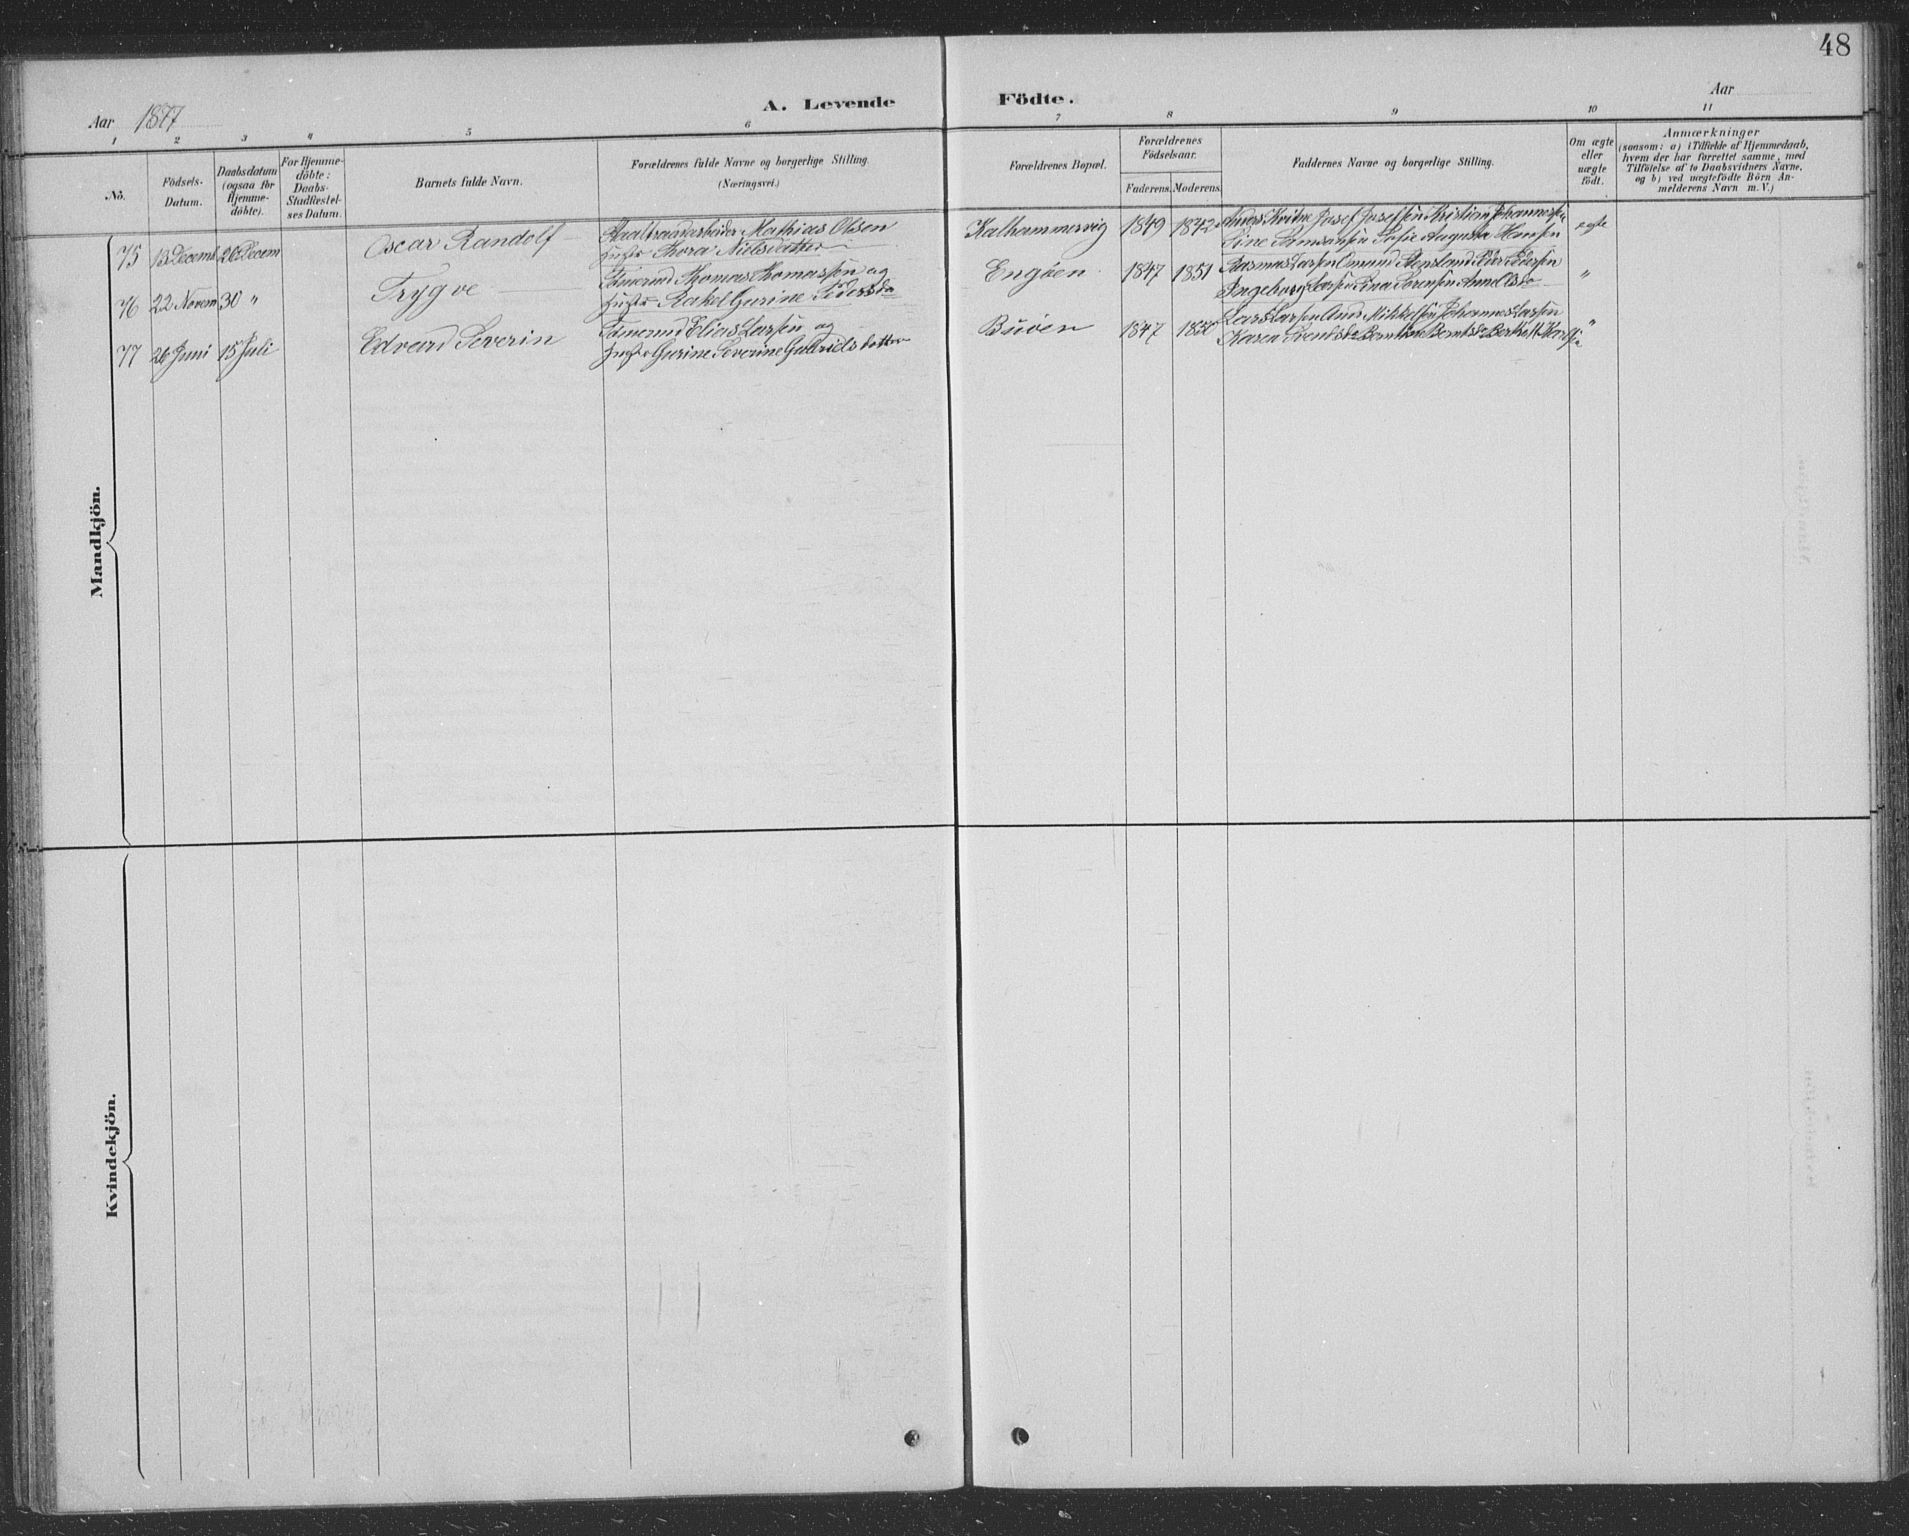 48
Aar 1877
A. Levende Födte.
Aar
1 2 3 4 5 6 7 8 9 10 11
No.
Födsels-Datum.
Daabsdatum (ogsaa for Hjemme-döbte).
For Hjemme-döbte: Daabs-Stadfæstel-ses Datum.
Barnets fulde Navn.
Forældrenes fulde Navne og borgerlige Stilling.
(Næringsvei.)
Forældrenes Bopæl.
Forældrenes Födselsaar.
Faderens. Moderens.
Faddernes Navne og borgerlige Stilling.
Om ægte eller uægte födt.
Anmærkninger
(saasom: a) i Tilfælde af Hjemmedaab,
hvem der har forrettet samme, med
Tilföielse af to Daabsvidners Navne,
og b) ved uægtefödte Börn An-
melderens Navn m. V.)
Mandkjön.
75 13 Decemb 26 Decem Oscar Randolf Mathias Olsen
Thora Nielsdatter
Kalhammervig 1849 1842 Josef Josefsen Kristian Johannessen
Sofie Augusta Hansen
egte
76 22 Novem 30 " Trygve Tömmerm Thomas Thomassen og
Hustr Rakel Gurine Pedersda
Engöen 1847 1851 Rasmus Larsen Omund Peder Pedersen
Ingeborg Larsen Tina Sörensen Anna Olsda
"
77 26 Juni 15 Juli Edvard Severin Tömmerm Elias Larsen og
Hustr Gurine Severine Gabrielsdatter
Buöen 1847 Lars Larsen Mikkelsen Johannes Larsen
Karen
"
Kvindekjön.